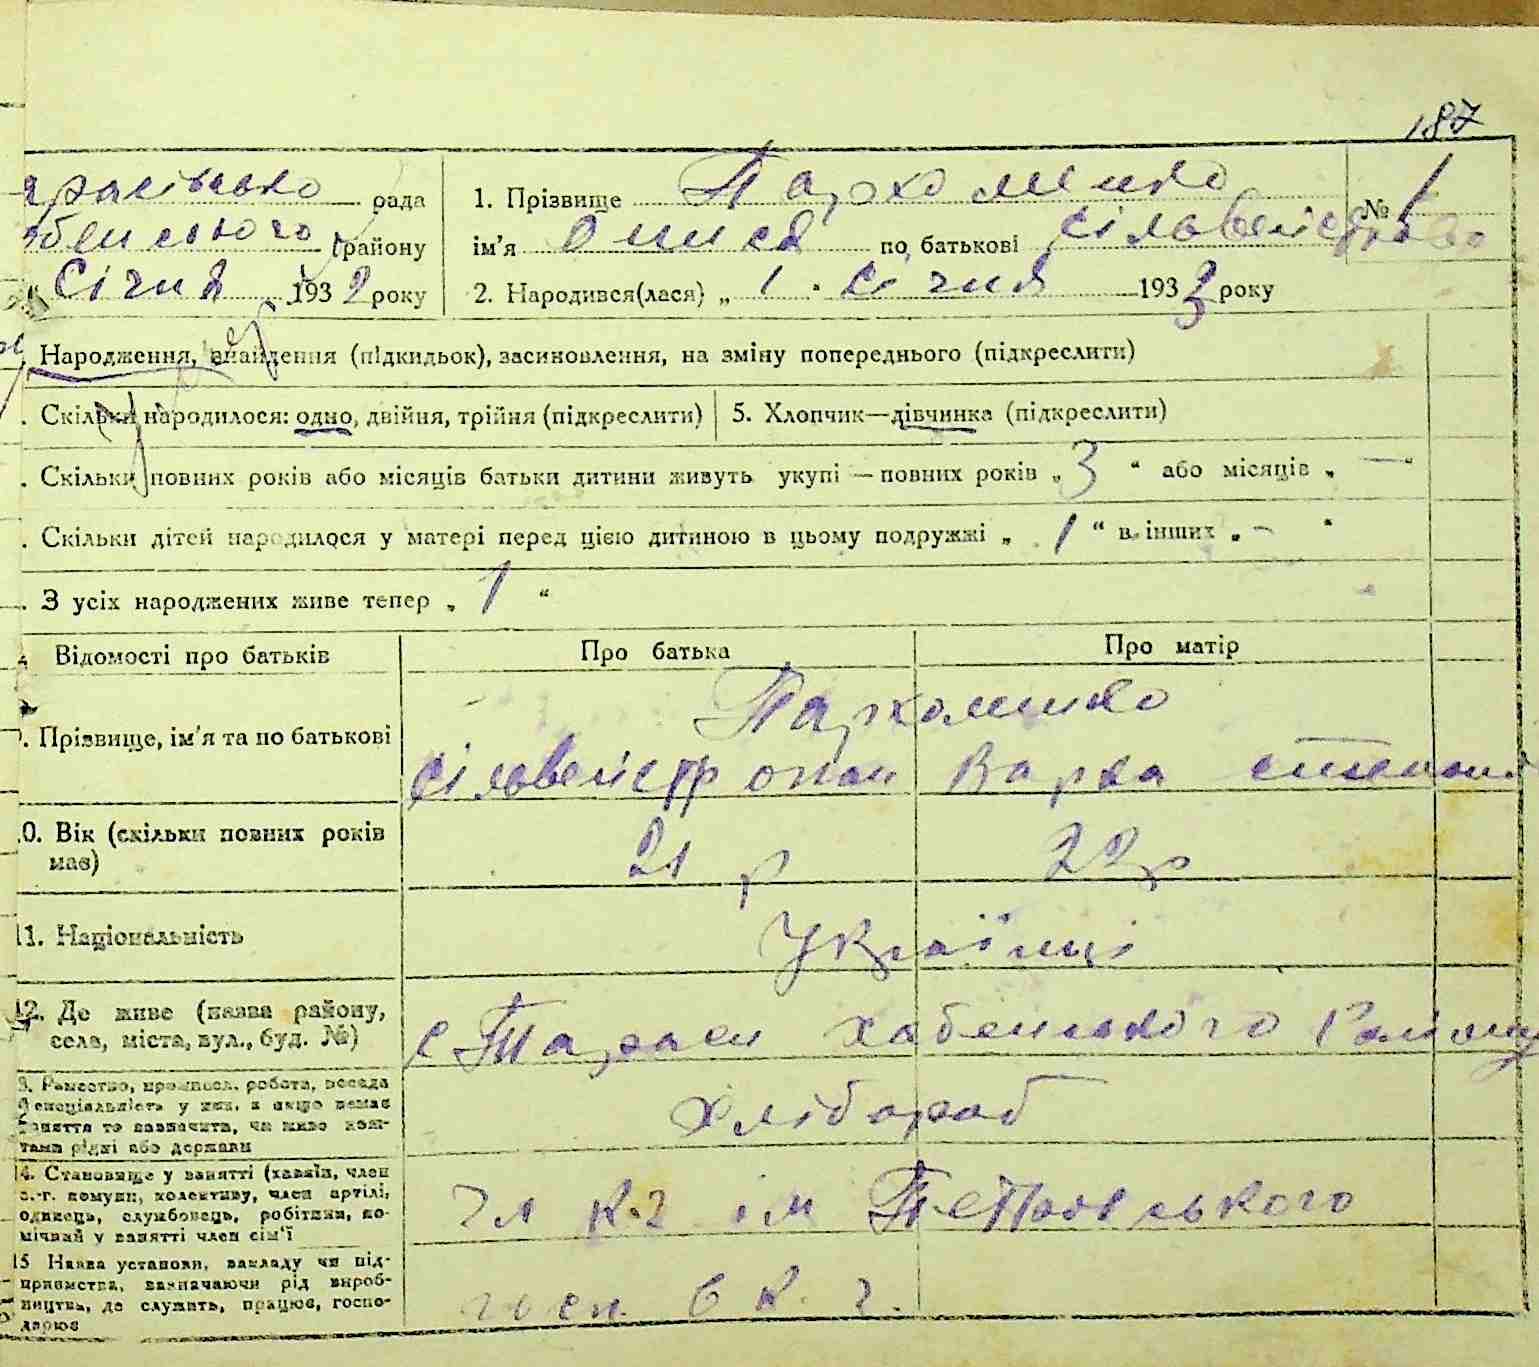 187
рада
1. Прізвище Пархоменко № 1
району
ім'я Онися по батькові Сільвейстровно
Січня 1932 року
2. Народився(лася) „ 1 " Січня 1933 року
Народження, знайдення (підкидьок), засиновлення, на зміну попереднього (підкреслити)
. Скільки народилося: одно, двійня, трійня (підкреслити)
5. Хлопчик—дівчинка (підкреслити)
. Скільки повних років або місяців батьки дитини живуть укупі — повних років „ 3 “ або місяців „ — “
. Скільки дітей народилося у матері перед цією дитиною в цьому подружжі „ 1 “ в інших „ - “
. З усіх народжених живе тепер „ 1 “
Відомості про батьків
Про батька
Про матір
. Прізвище, ім'я та по батькові
Пархоменко
Сільвейстр Варка
0. Вік (скільки повних років має)
21 р
22 р
11. Національність
Українці
12. Де живе (назва району, села, міста, вул., буд. №)
с Тараси Хабенського Району
3. Ремество, промисл. робота, посада
спеціальність у них, а якщо немає
заняття то зазначити, чи живе кош-
тами рідні або держави
Хлібороб
14. Становище у занятті (хазяїн, член
с.-г. комуни, колективу, член артілі,
одинець, службовець, робітник, по-
мічний у занятті член сім'ї
чл к.г ім Петровського
15 Назва установи, закладу чи під-
приємства, зазначаючи рід вироб-
ництва, де служить, працює, госпо-
дарює
в к. г.